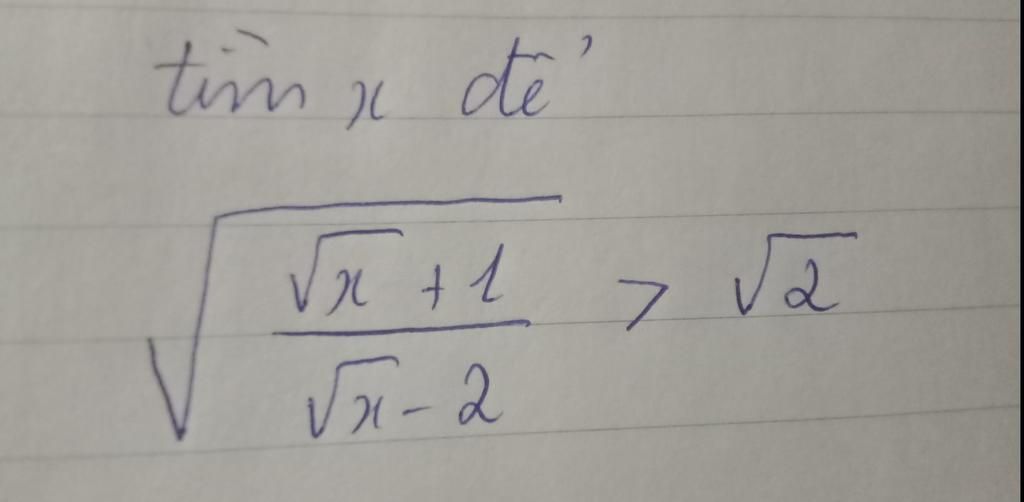 tìm x để
√((√x + 1)/(√x - 2)) > √2